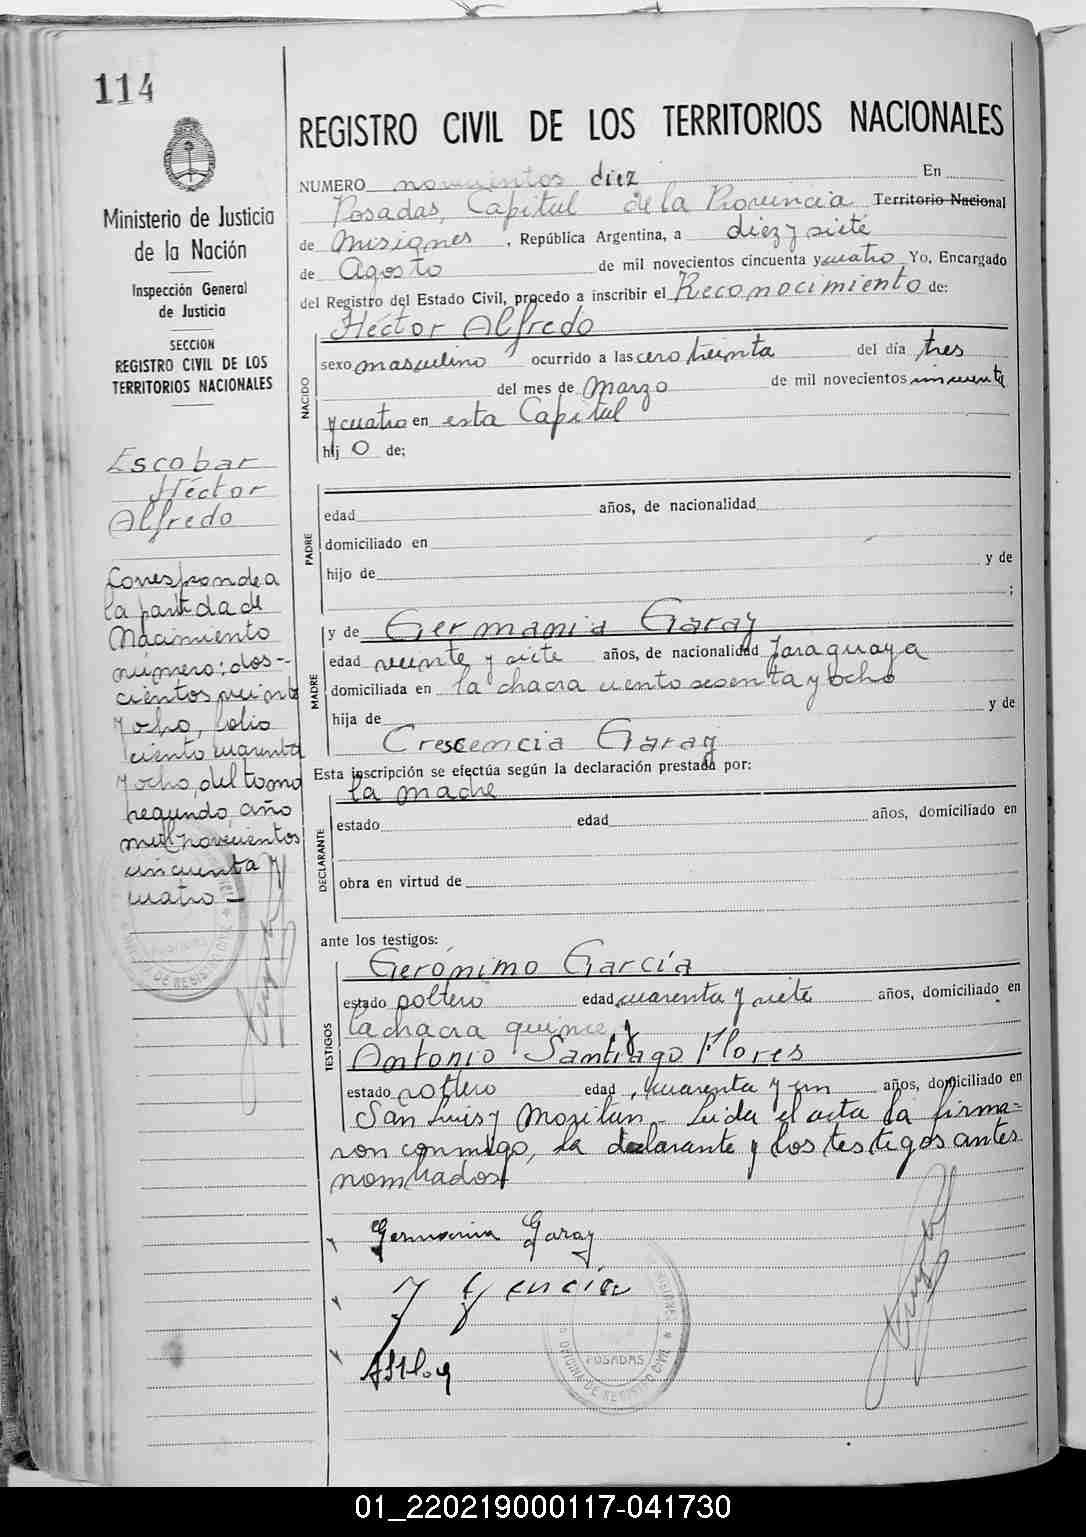 114
Ministerio de Justicia
de la Nación
Inspección General
de Justicia
SECCION
REGISTRO CIVIL DE LOS
TERRITORIOS NACIONALES
Escobar
Héctor
Alfredo
Corresponde a
la partida de
Nacimiento
número: dos-
cientos veinte
y ocho, folio
ciento cuarenta
y ocho, del tomo
segundo, año
mil novecientos
cincuenta y
cuatro
REGISTRO CIVIL DE LOS TERRITORIOS NACIONALES
NUMERO novecientos diez En
Posadas, Capital de la Provincia Territorio Nacional
de Misiones, República Argentina, a diez y siete
de Agosto de mil novecientos cincuenta y cuatro Yo, Encargado
del Registro del Estado Civil, procedo a inscribir el Reconocimiento de:
Héctor Alfredo
NACIDO
sexo masculino ocurrido a las cero treinta del día tres
del mes de Marzo de mil novecientos cincuenta
y cuatro en esta Capital
hij o de;
PADRE
edad años, de nacionalidad
domiciliado en
hijo de y de
;
MADRE
y de Germania Garay
edad veinte y siete años, de nacionalidad Paraguaya
domiciliada en la chacra ciento sesenta y ocho
hija de y de
Crescencia Garay
Esta inscripción se efectúa según la declaración prestada por:
la madre
DECLARANTE
estado edad años, domiciliado en
obra en virtud de
ante los testigos:
TESTIGOS
Gerónimo García
estado soltero edad cuarenta y siete años, domiciliado en
la chacra quince y
Antonio Santiago Flores
estado soltero edad cuarenta y un años, domiciliado en
San Luis y Leida el acta la firma=
ron conmigo, la declarante y los testigos antes
nombrados
Germania Garay
OFICINA DE REGISTRO CIVIL
POSADAS
01_220219000117-041730